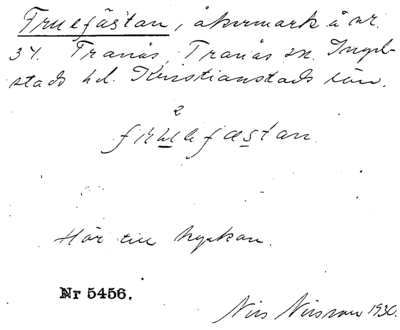 Fruefästan, åkermark å nr.
34. Tranås, Tranås sn. Ingel-
stads hd. Kristianstads län.
2
fruefæstan
Hör till kyrkan.
Nr 5456.
Nils Nilsson 1930.